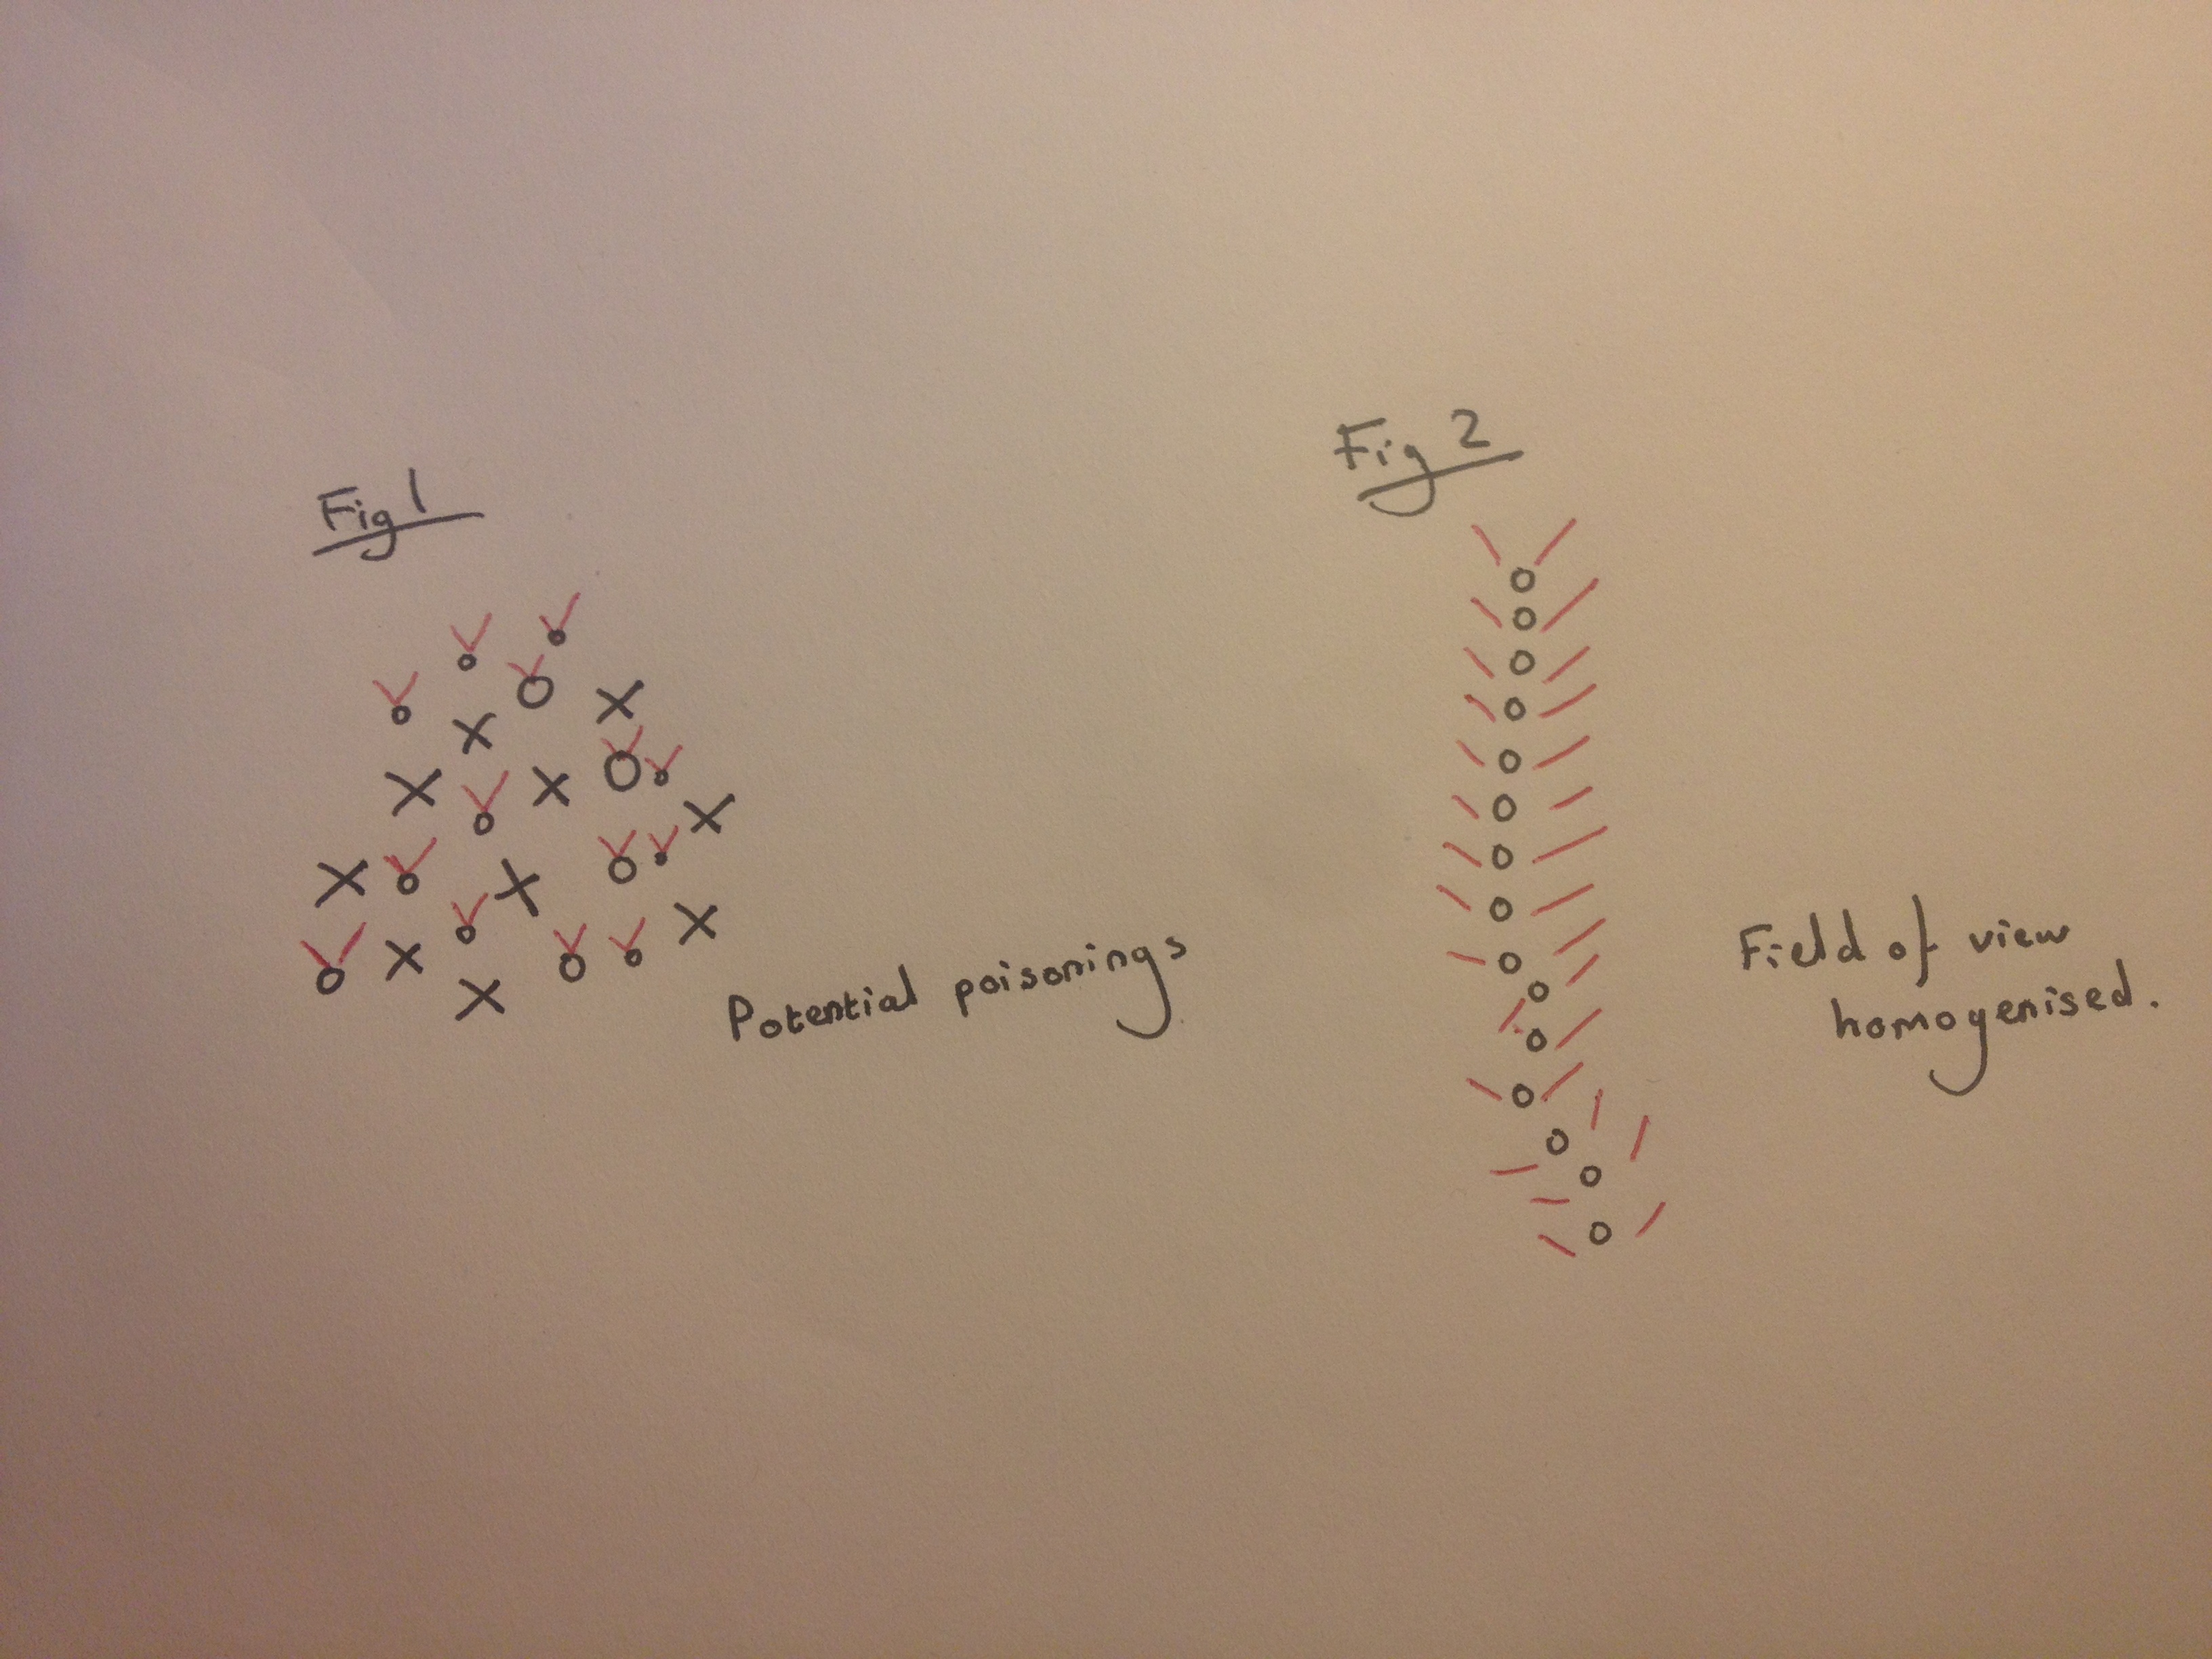 Fig 1
Potential poisonings
Fig 2
Field of view
homogenised.